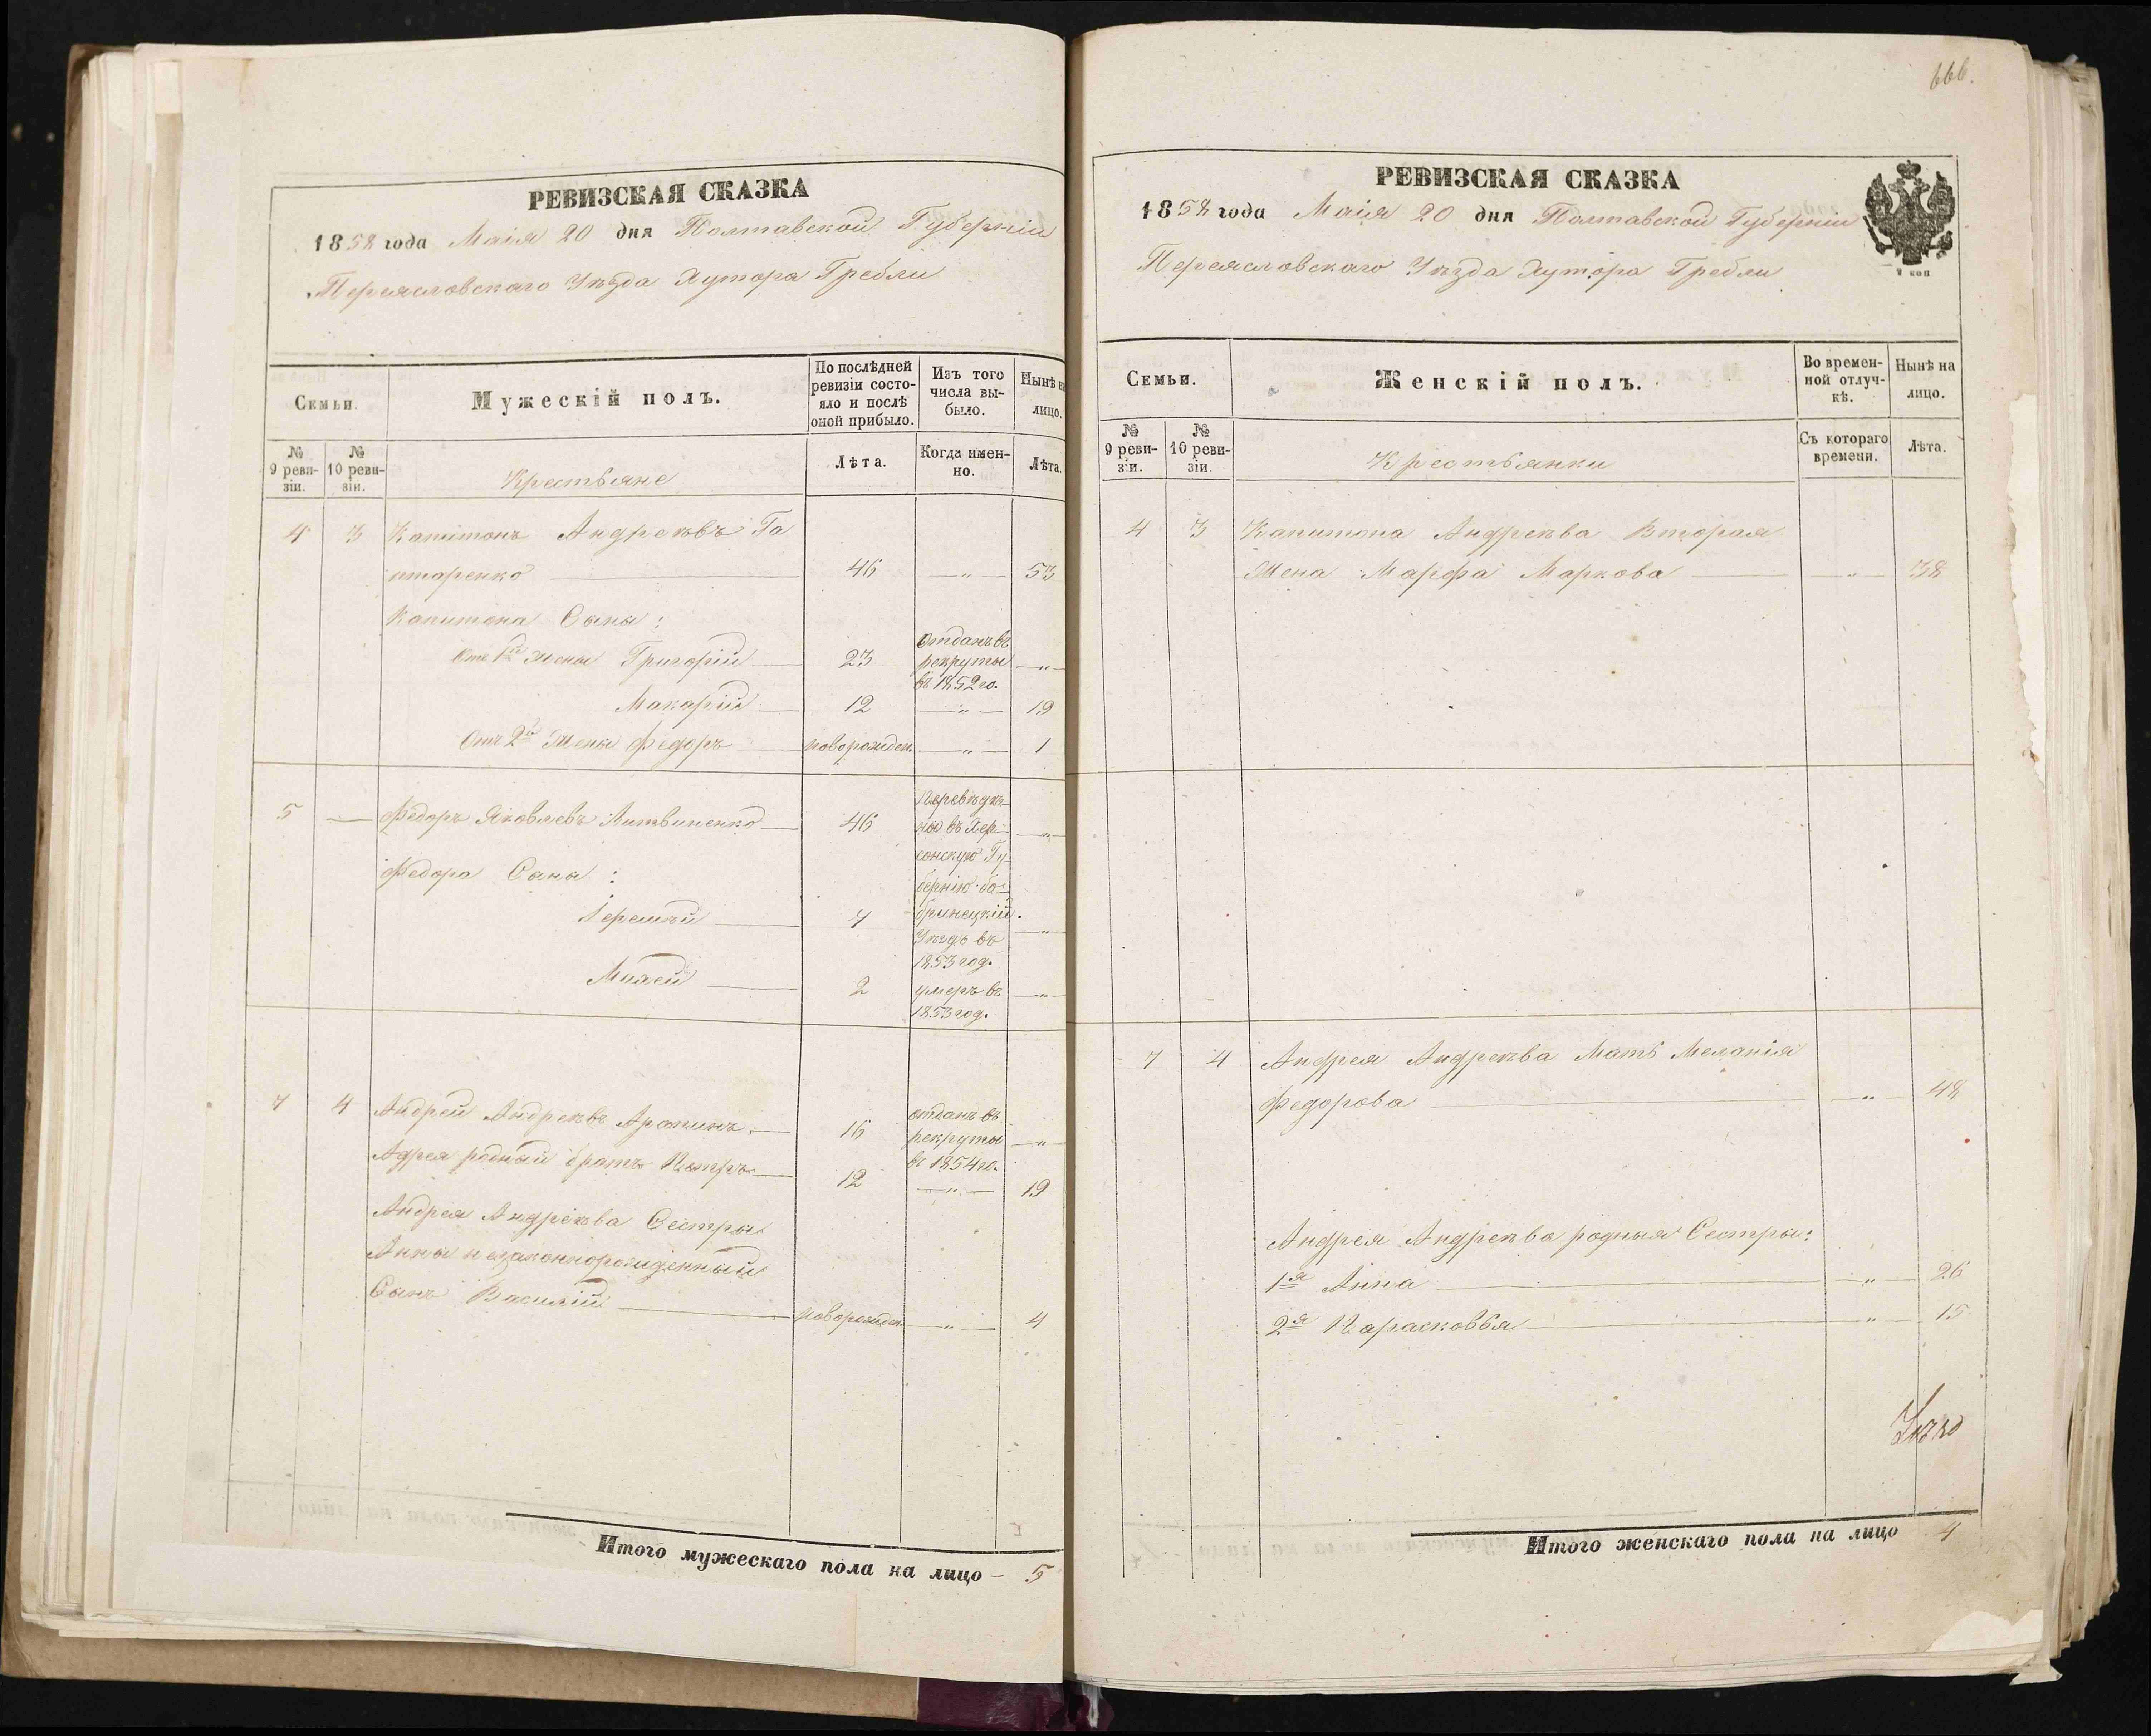 РЕВИЗСКАЯ СКАЗКА
1858 года Маія 20 дня Полтавской Губерніи
Переясловскаго Уѣзда Хутора Гребли
Семьи.
Мужескій полъ.
По послѣдней ревизіи состояло и послѣ оной прибыло.
Изъ того числа выбыло.
Нынѣ на лицо.
№ 9 ревизіи.
№ 10 ревизіи.
Крестьяне
Лѣта.
Когда именно.
Лѣта.
4 3 Капитонъ Андреѣвъ
46 — „ — 53
Капитона Сыны:
Отъ 1й Жены Григорій — 23 отданъ въ рекруты въ 1852 го. — „ —
Макарій — 12 — „ — 19
Отъ 2й Жены Федоръ — новорожден. — „ — 1
5 — Федоръ Яковлевъ Литвиненко — 46 — „ —
Федора Сына:
Іеремѣй — 7 — „ —
Херсонскую Губернію Бобринецкій Уѣздъ въ 1853 год.
Михей — 2 умеръ въ 1853 год. — „ —
7 4 Андрей Андреѣвъ Арапинъ — 16 отданъ въ рекруты въ 1854 го. — „ —
Адрея родный братъ Петръ — 12 — „ — 19
Андрея Андреѣва Сестры
Анны незаконнорожденный
Сынъ Василій — новорожден. — „ — 4
Итого мужескаго пола на лицо — 5
666.
РЕВИЗСКАЯ СКАЗКА
1858 года Маія 20 дня Полтавской Губерніи
Переясловскаго Уѣзда Хутора Гребли
Семьи.
Женскій полъ.
Во временной отлучкѣ.
Нынѣ на лицо.
№ 9 ревизіи.
№ 10 ревизіи.
Крестьянки
Съ котораго времени.
Лѣта.
4 3 Капитона Андреѣва Вторая
Жена Марфа Маркова — „ — 38
7 4 Андрея Андреѣва Мать Меланія
Федорова — „ — 48
Андрея Андреѣва родныя Сестры:
1я Анна — „ — 26
2я Парасковья — „ — 15
Итого женскаго пола на лицо 4